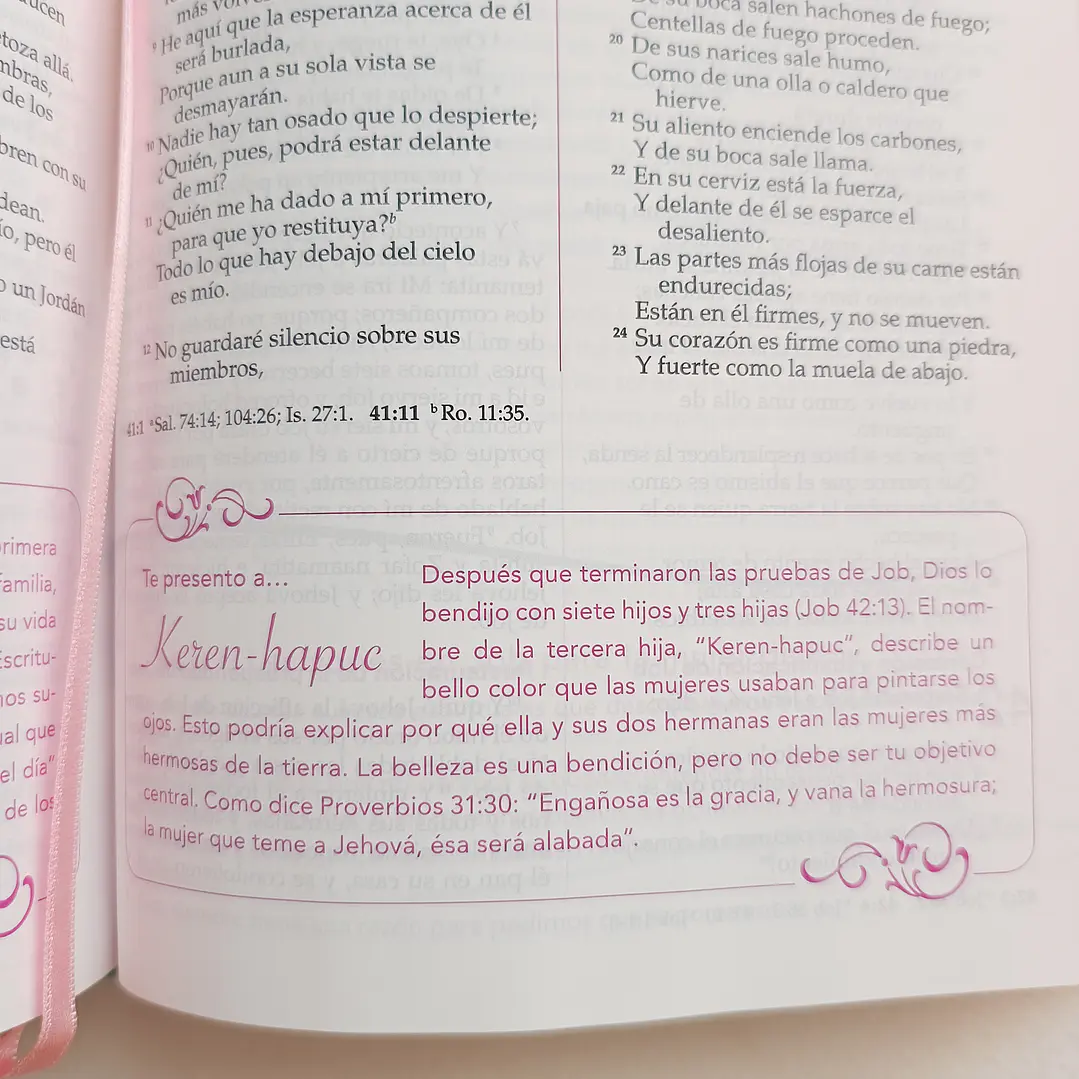 ucen
toza allá.
mbras,
de los
bren con su
dean.
ío, pero él
o un Jordán
está
rimera
familia,
su vida
Escritu-
nos su-
ual que
el día"
de los
más
⁹ He aquí que la esperanza acerca de él
será burlada,
Porque aun a su sola vista se
desmayarán.
¹⁰ Nadie hay tan osado que lo despierte;
¿Quién, pues, podrá estar delante
de mí?
¹¹ ¿Quién me ha dado a mí primero,
para que yo restituya?ᵇ
Todo lo que hay debajo del cielo
es mío.
¹² No guardaré silencio sobre sus
miembros,
De su boca salen hachones de fuego;
Centellas de fuego proceden.
²⁰ De sus narices sale humo,
Como de una olla o caldero que
hierve.
²¹ Su aliento enciende los carbones,
Y de su boca sale llama.
²² En su cerviz está la fuerza,
Y delante de él se esparce el
desaliento.
²³ Las partes más flojas de su carne están
endurecidas;
Están en él firmes, y no se mueven.
²⁴ Su corazón es firme como una piedra,
Y fuerte como la muela de abajo.
41:1 ᵃSal. 74:14; 104:26; Is. 27:1. 41:11 ᵇRo. 11:35.
Te presento a...
Keren-hapuc
Después que terminaron las pruebas de Job, Dios lo
bendijo con siete hijos y tres hijas (Job 42:13). El nom-
bre de la tercera hija, "Keren-hapuc", describe un
bello color que las mujeres usaban para pintarse los
ojos. Esto podría explicar por qué ella y sus dos hermanas eran las mujeres más
hermosas de la tierra. La belleza es una bendición, pero no debe ser tu objetivo
central. Como dice Proverbios 31:30: "Engañosa es la gracia, y vana la hermosura;
la mujer que teme a Jehová, ésa será alabada".